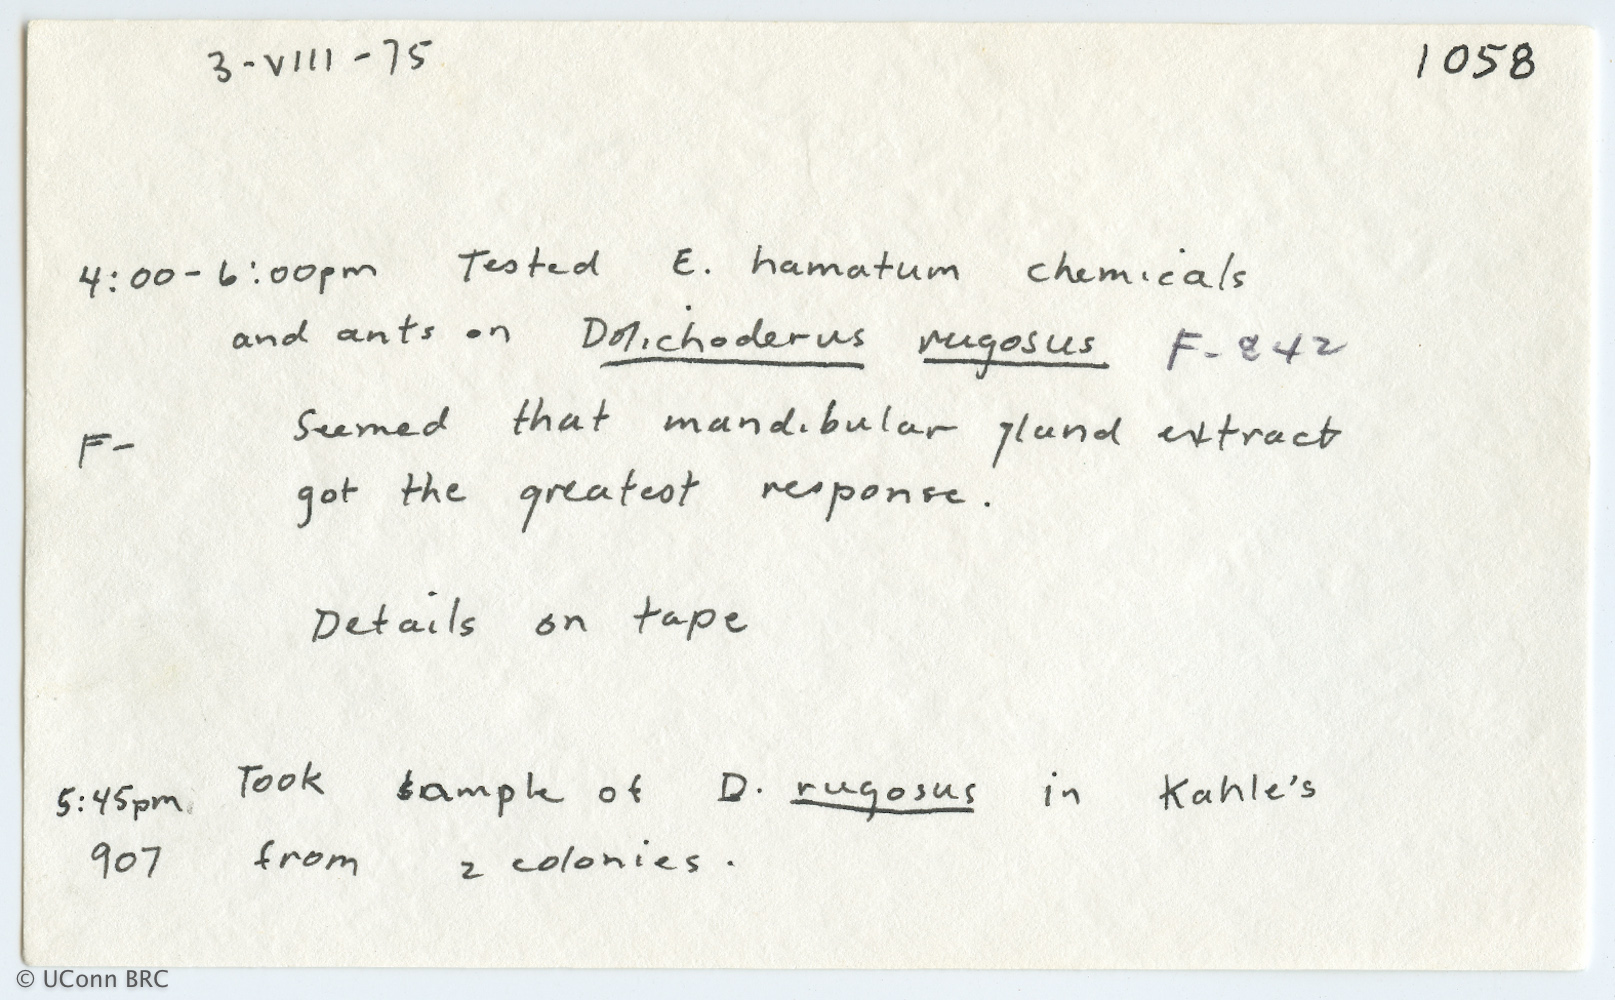 3-VIII-75 1058
4:00-6:00pm Tested E. hamatum chemicals
and ants on Dolichoderus rugosus F-242
F- Seemed that mandibular gland extract
got the greatest response.
Details on tape
5:45pm Took sample of D. rugosus in Kahle's
907 from 2 colonies.
© UConn BRC